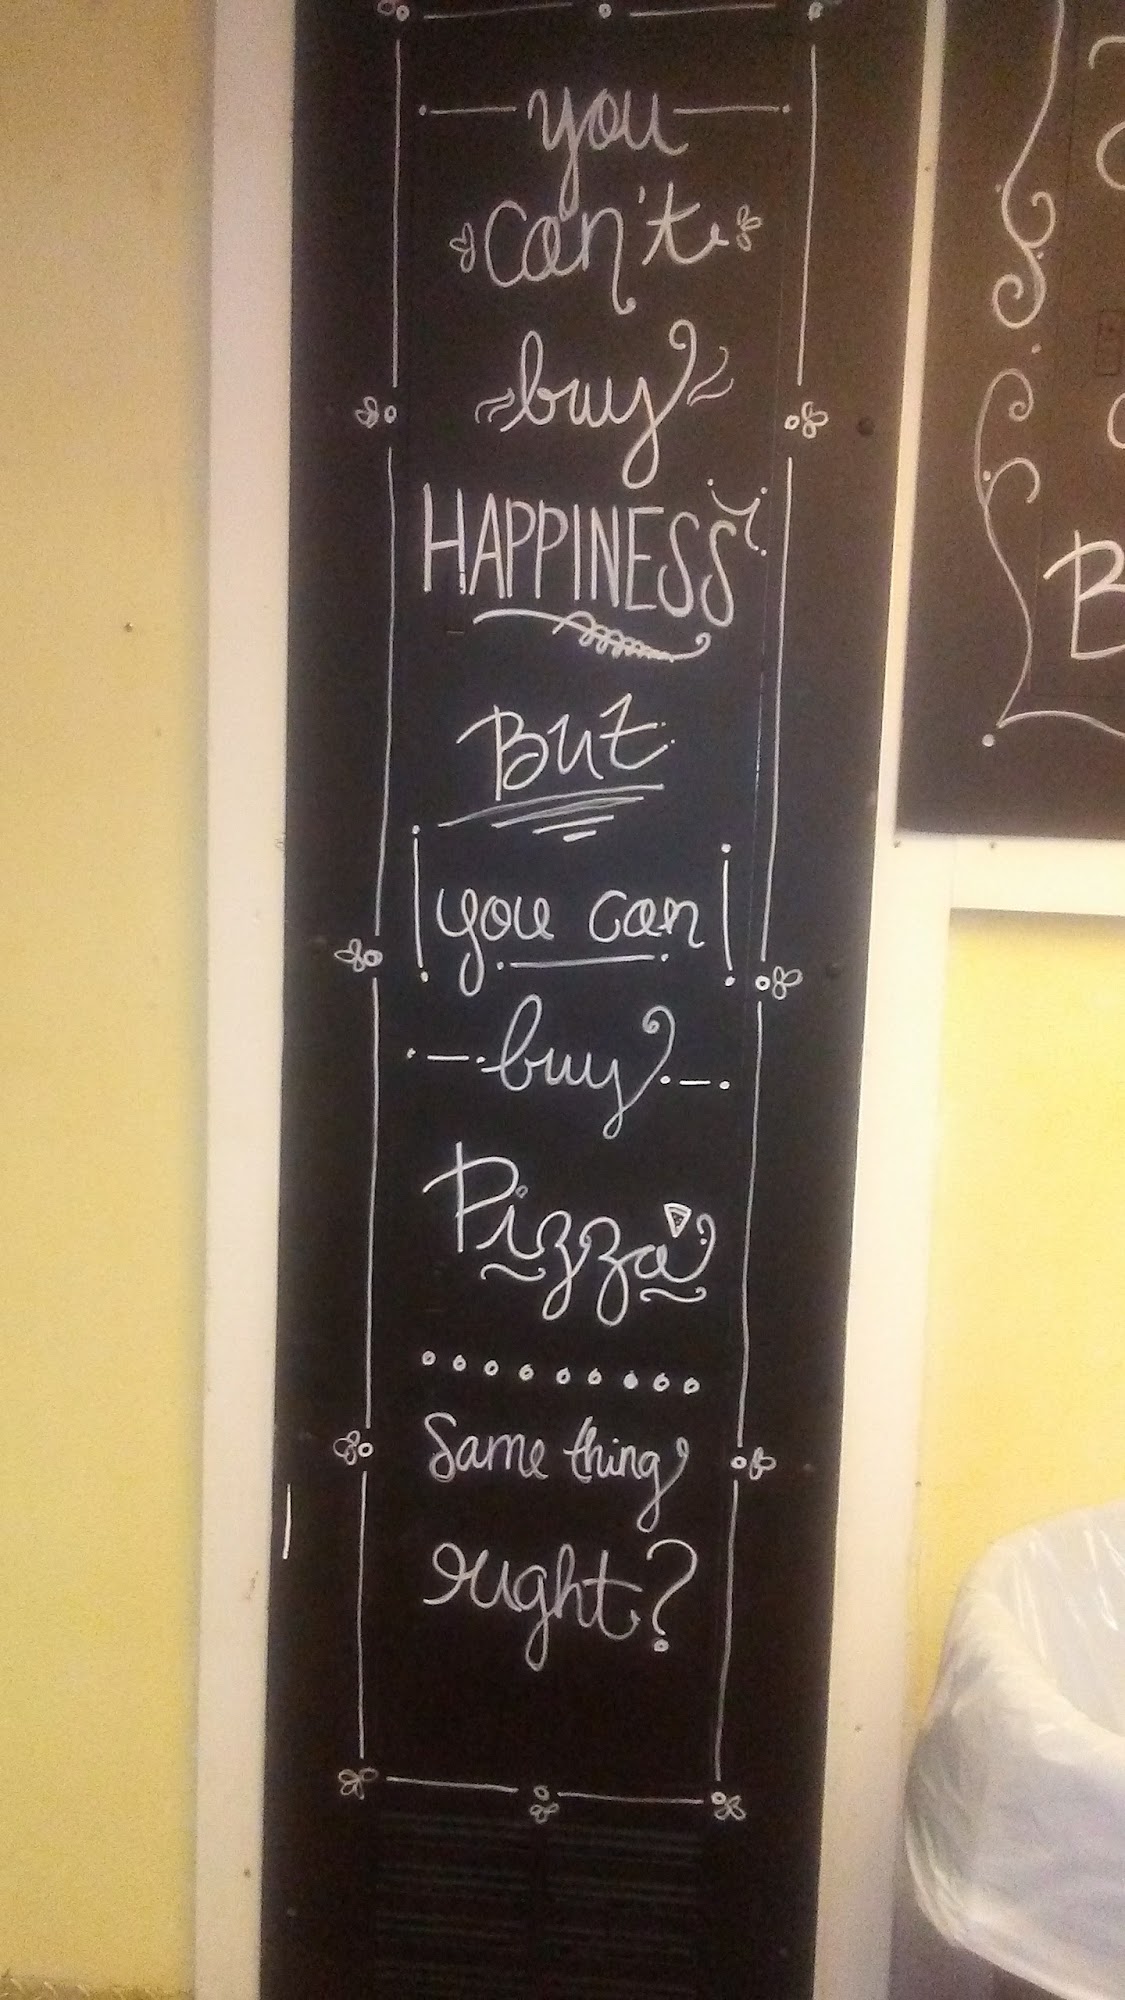 you
can't
buy
HAPPINESS
But
you can
buy
Pizza
Same thing
right?
B